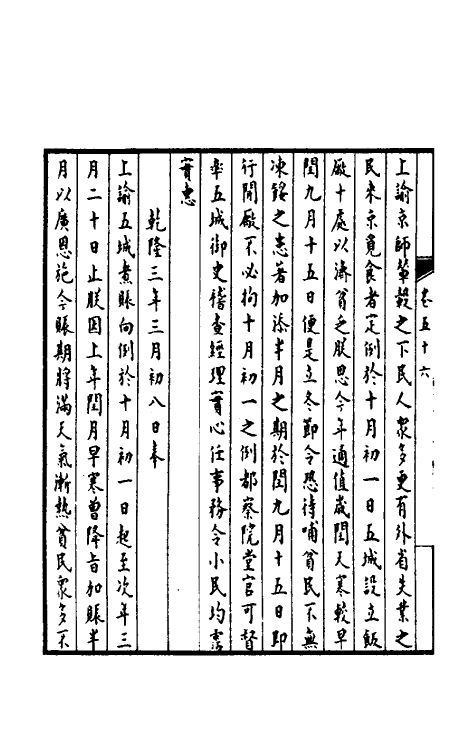 卷五十六
上諭京師輦轂之下民人衆多更有外省失業之
民来京覓食者定例於十月初一日五城設立飯
廠十處以濟窮乏朕思今年適值歲閏天寒較早
閏九月十五日便是立冬節令恐待哺貧民不無
凍餒之患著加添半月之期於閏九月十五日即
行開廠不必拘十月初一之例都察院堂官可督
率五城御史稽查經理實心任事務令小民均霑
實惠
乾隆三年三月初八日奉
上諭五城煮賑向例於十月初一日起至次年三
月二十日止朕因上年閏月早寒曾降旨加賑半
月以廣恩施今賑期將滿天氣漸熱貧民衆多不